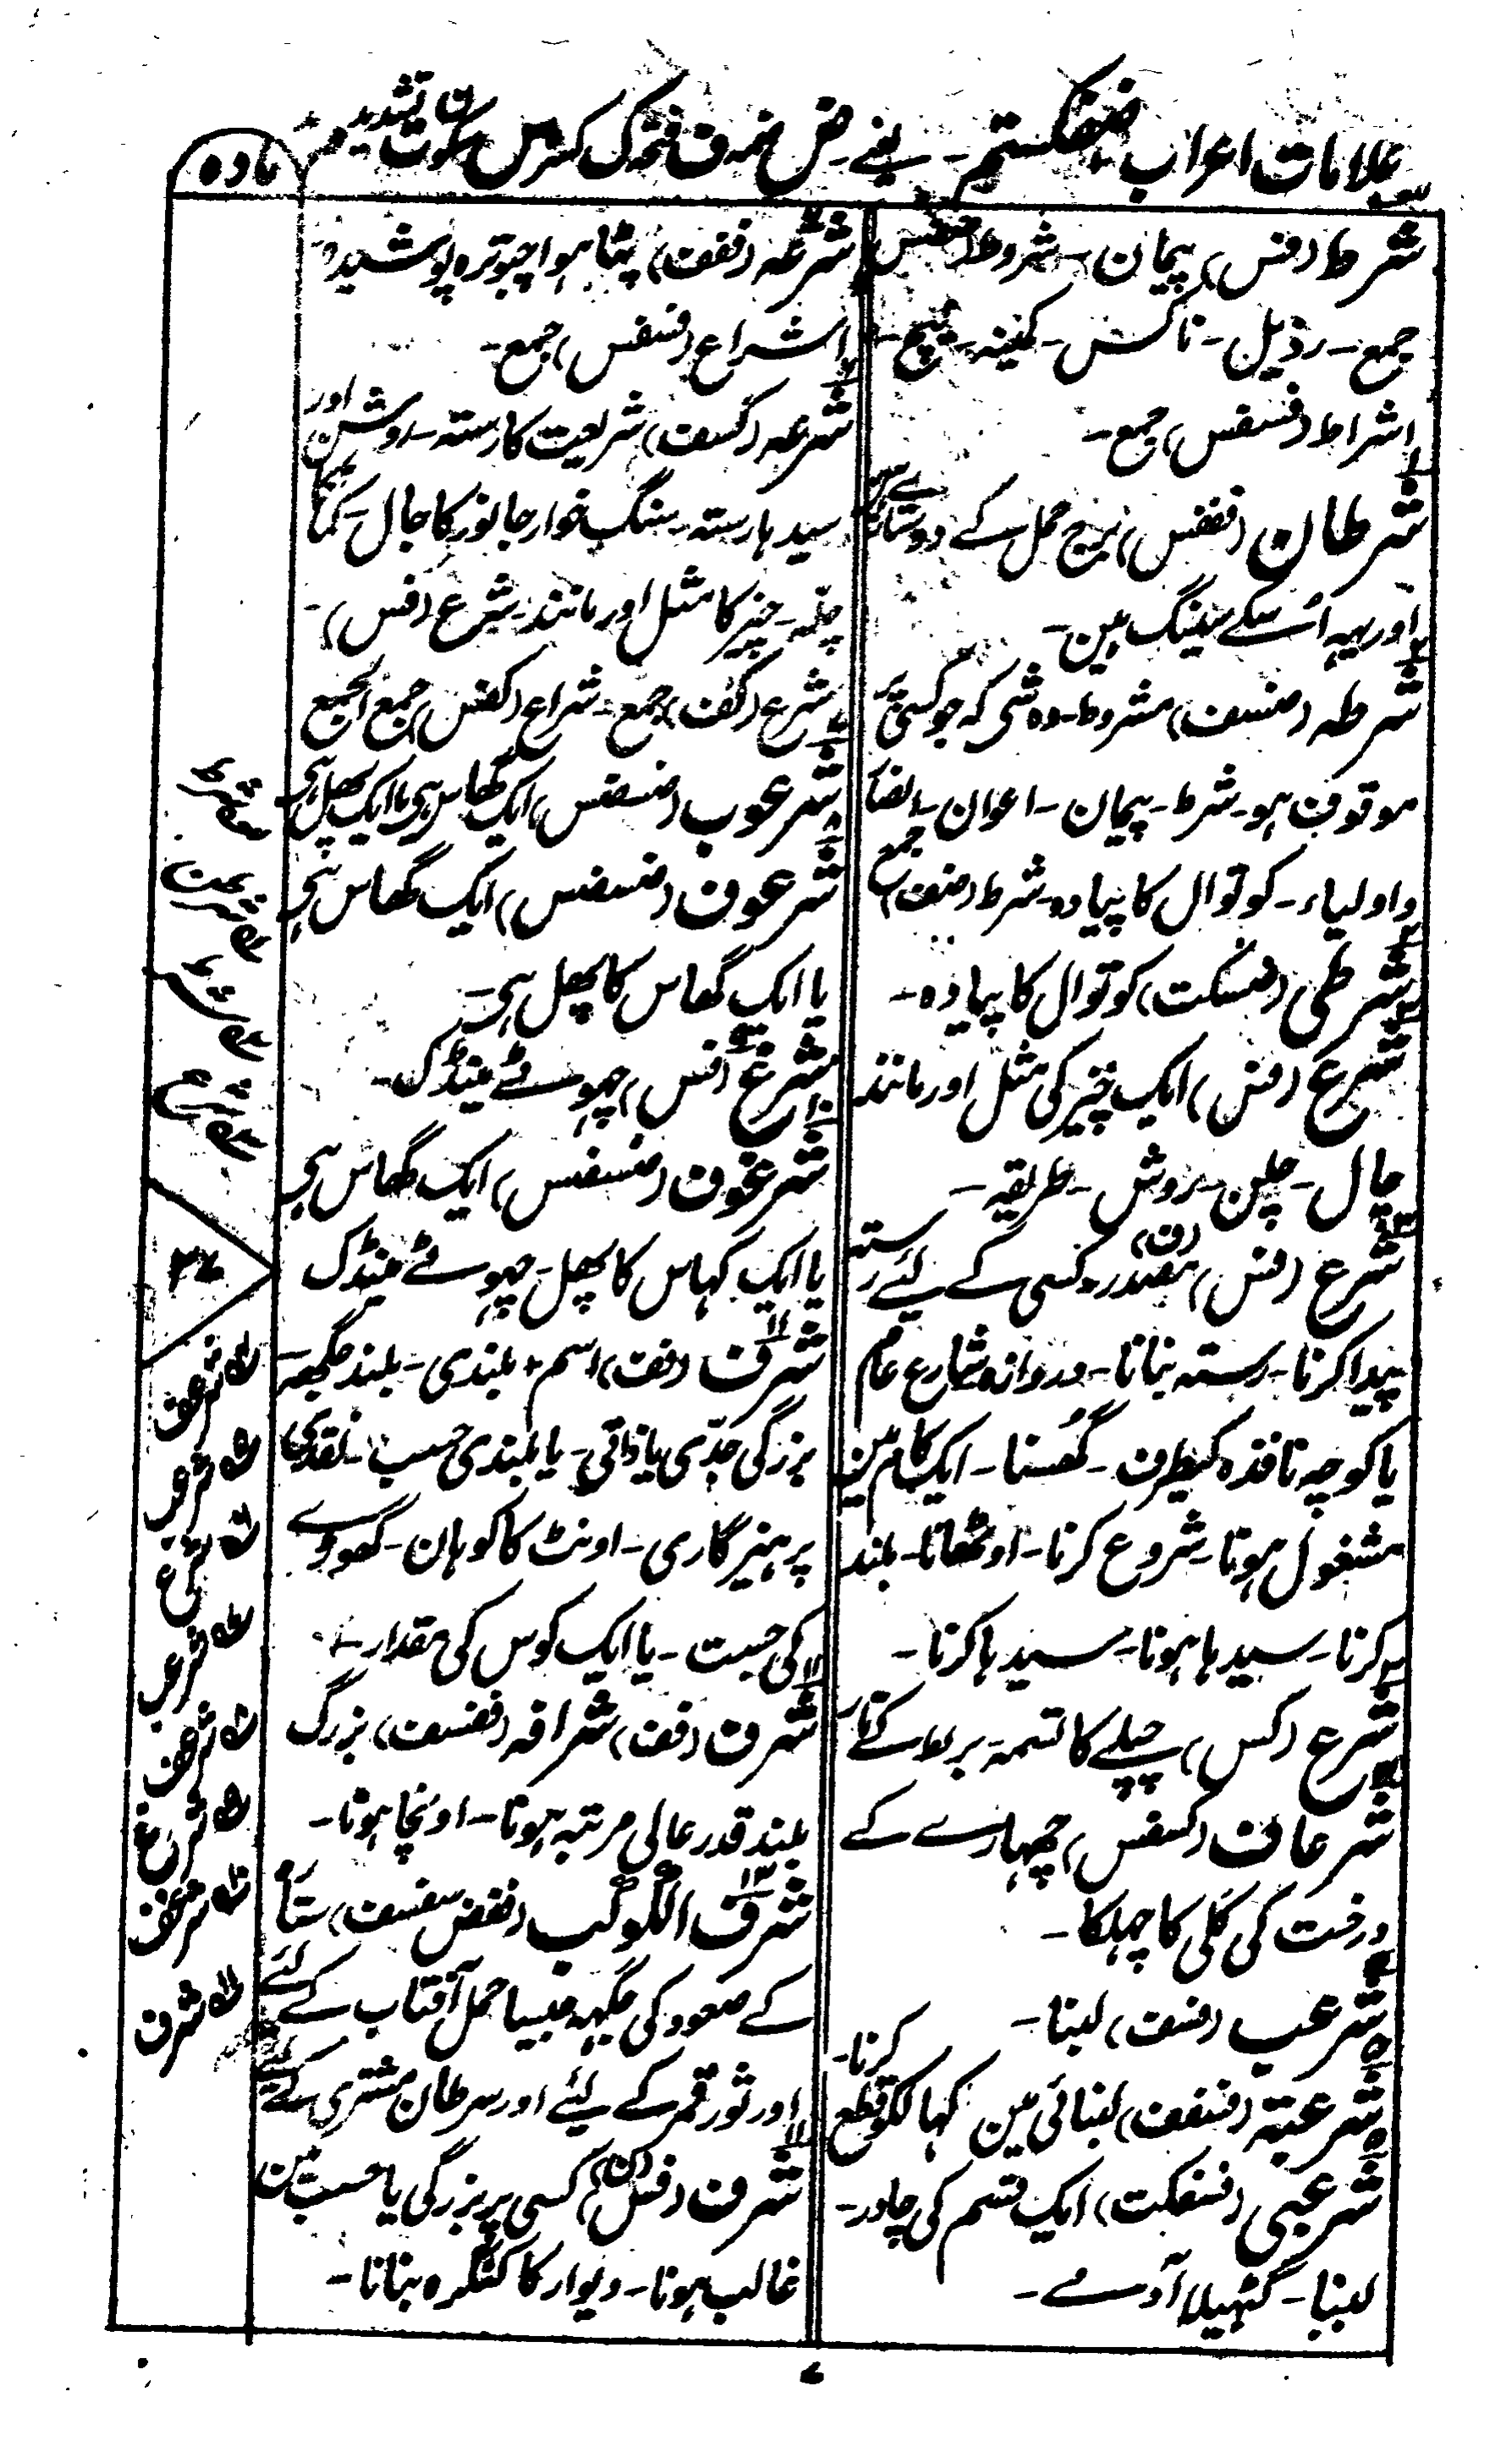 علامات اعراب ضفکستم ـ یعنے ض ضمہ ف فتحہ ک کسرہ س سکون ت تشدید م
مادہ
شرط (فس) پیمان ـ شروط (ضضس)
جمع ـ رذیل ـ ناکس ـ کمینہ ـ ہیچ ـ
اشراط (فسفس) جمع ـ
شرطان (ففس) برج حمل کے دو ستارے
اور یہہ اُسکے سینگ ہین ـ
شرطہ (ضسف) مشروط ـ وہ شی کہ جو کسی پر
موقوف ہو ـ شرط ـ پیمان ـ اعوان ـ انصار
و اولیاء ـ کوتوال کا پیادہ ـ شرط (ضف) جمع
شرطی (ضسکت) کوتوال کا پیادہ ـ
شرع (فس) ایک چیز کی مثل اور مانند
چال ـ چلن ـ روش ـ طریقہ ـ
شرع (فس) مصدر (ف) کسی کے لئے رستہ
پیدا کرنا ـ رستہ بنانا ـ دروازہ شارع عام
یا کوچہ نافذہ کیطرف ـ گُھسنا ـ ایک کام مین
مشغول ہونا ـ شروع کرنا ـ اوٹھانا ـ بلند
کرنا ـ سیدہا ہونا ـ سیدہا کرنا ـ
شرع (کس) چپلے کا تسمہ ـ بربط کے تار
شرعاف (کسفس) چھہارے کے
درخت کی کلی کا چہلکا ـ
شرعب (فسف) لنبا ـ
شرعبتہ (فسفف) لنبائی مین کہال کو قطع کرنا ـ
شرعبی (فسفکت) ایک قسم کی چادر ـ
لنبا ـ گٹھیلا آدمے ـ
شرعہ (ففف) پٹا ہوا چبوترہ پوشیدہ
اشراع (فسفس) جمع ـ
شرعہ (کسف) شریعت کا رستہ ـ روشن اور
سیدہا رستہ ـ سنگ خوار جانور کا جال ـ کمان کا
چلّہ ـ چیز کا مثل اور مانند ـ شرع (فس) ـ
شرع (کف) جمع ـ شراع (کفس) جمع الجمع
شرعوب (ضسضس) ایک گھاس ہی یا ایک پھل ہی
شرعوف (ضسضس) ایک گھاس ہی
یا ایک گھاس کا پھل ہی ـ
شرغ (فس) چہوٹے مینڈک ـ
شرغوف (ضسضس) ایک گھاس ہی
یا ایک گہاس کا پھل ـ چہوٹے مینڈک
شرف (فف) اسم + بلندی ـ بلند جگھہ ـ
بزرگی جدّی یا ذاتی ـ یا بلندی حسب ـ نقدی
پرہیزگاری ـ اونٹ کا کوہان ـ گھوڑے
کی جست ـ یا ایک کوس کی مقدار ـ
شرف (فف) شرافہ (ففسف) بزرگ
بلند قدر عالی مرتبہ ہونا ـ اونچا ہونا ـ
شرف الکوکب ستارہ
کے صعود کی جگہہ جیسا حمل آفتاب کے لئے
اور ثور قمر کے لئے اور سرطان مشتری کے لئے
شرف (فس) (ن) کسی پر بزرگی یا حسب مین
غالب ہونا ـ دیوار کا کنگرہ بنانا ـ
شرعف
شرغ
شرعب
شرعف
شرغ
شرغف
شرف